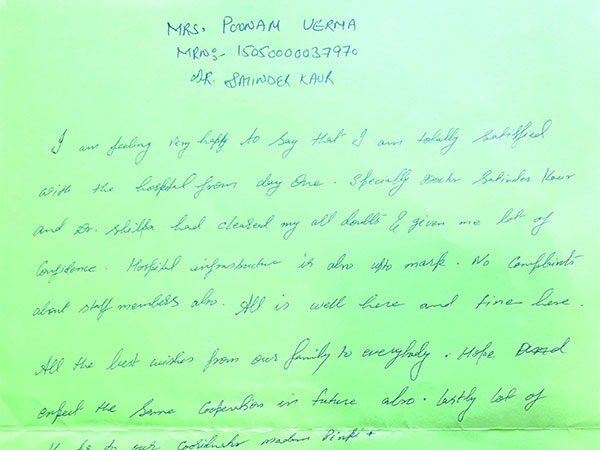 MRS. POONAM VERMA
MRNo:- 15050000037970
DR. SATINDER KAUR
I am feeling very happy to say that I am totally satisfied
with the hospital from day one. Specially Doctor Satinder Kaur
and Dr. Shilpa had cleared my all doubts & given me lot of
Confidence. Hospital infrastructure is also upto mark. No Complaints
about staff members also. All is well here and fine here.
All the best wishes from our family to everybody. Hope and
expect the same cooperation in future also. Lastly lot of
to our coordinator madam Pinki +